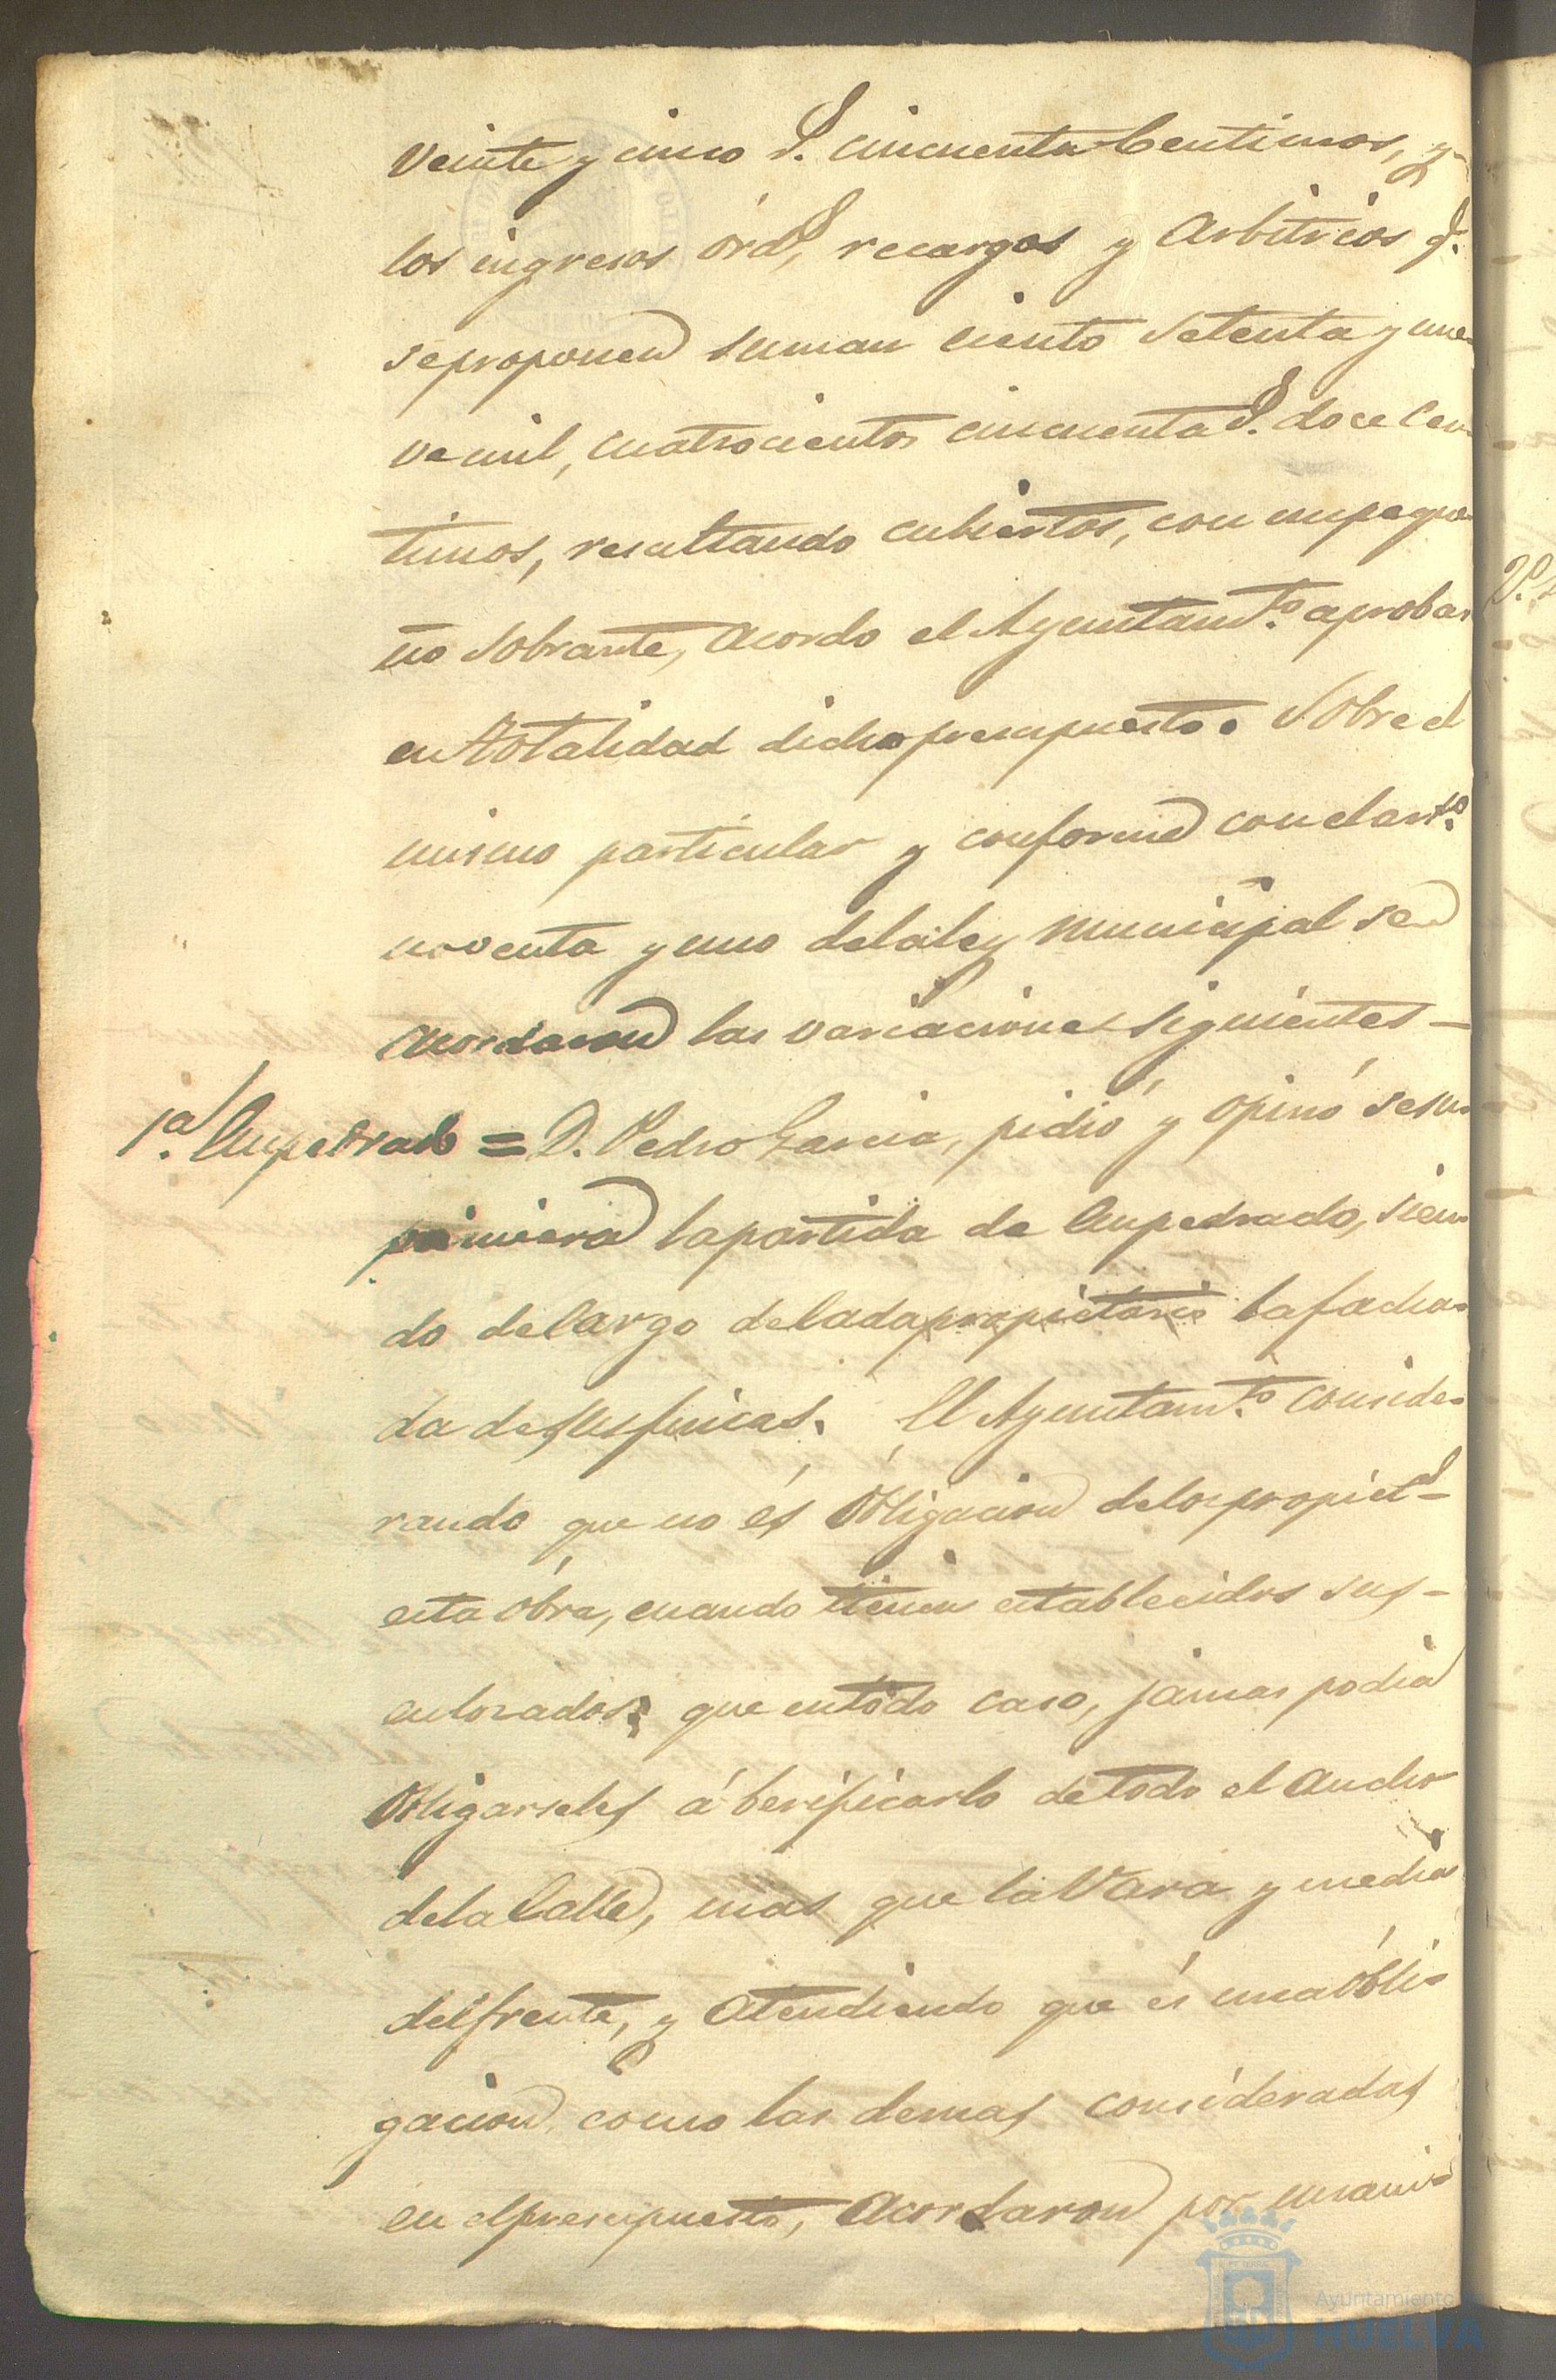 veinte y cinco P. cincuenta Centimos, y
los ingresos órds, recargos y Arbitrios q.
se proponen suman ciento setenta y nue-
ve mil, cuatrocientos cincuenta P. doce Cen-
timos, resultando cubiertos, con un peque-
ño sobrante, acordo el Ayuntamto. aprobar
en totalidad dicho presupuesto. Sobre el
mismo particular y conforme con el arto.
noventa y uno de la ley municipal se
acordaron las variaciones siguientes —
1a. Empedrado = D. Pedro Garcia, pidió y opinó se su-
primiera la partida de Empedrado, sien-
do de cargo de Cada propietario la facha-
da de sus fincas. El Ayuntamto. conside-
rando que no és Obligacion de los propiets
esta óbra, cuando tienen establecidos sus
enlozados; que en todo caso, jamas podia
Obligarseles á berificarlo de todo el ancho
de la Calle, mas que la Vara y media
del frente, y atendiendo que és una óbli-
gacion, como las demas consideradas
en el presupuesto, acordaron por unani-
Ayuntamiento
HUELVA